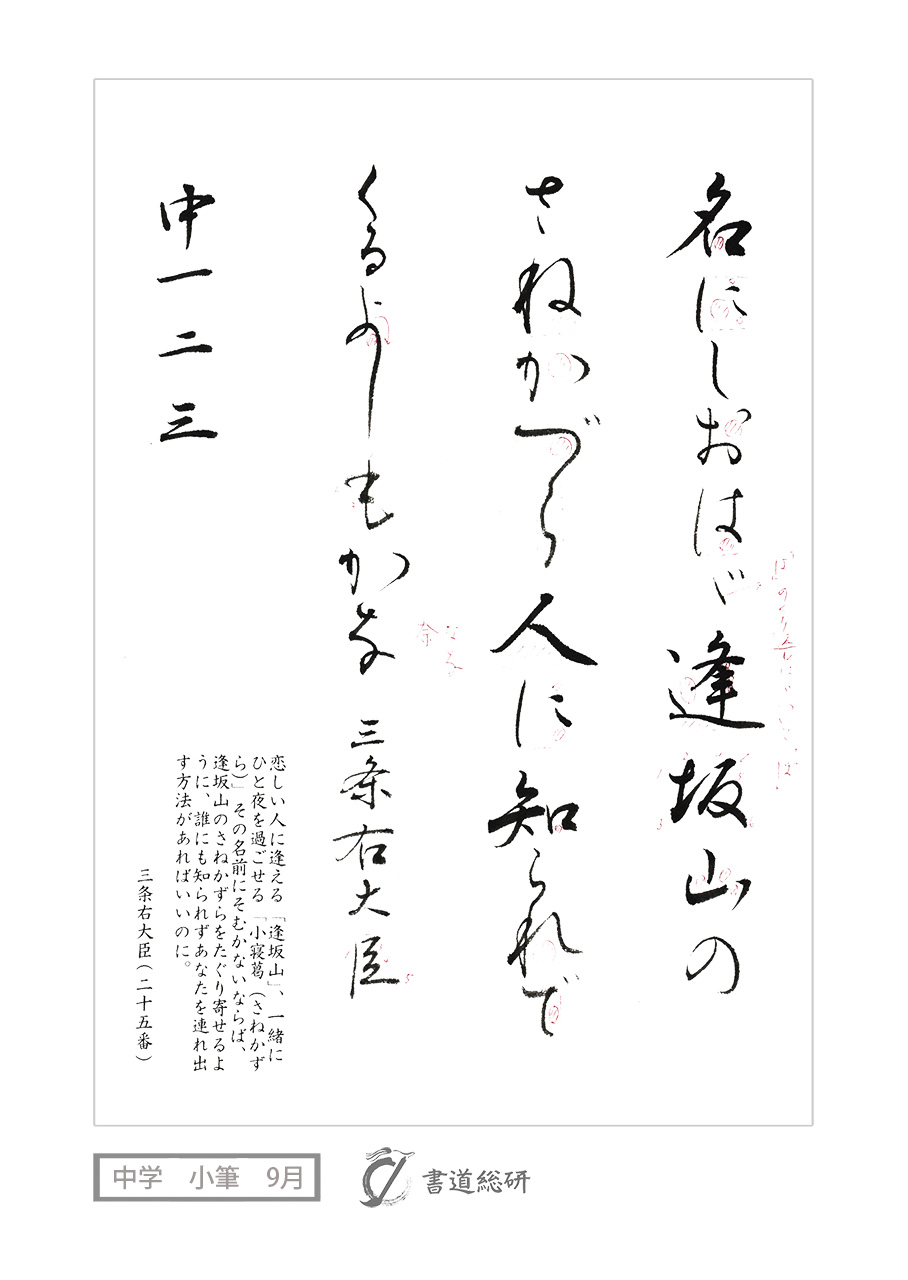 名にしおはば逢坂山の
さねかづら人に知られで
くるよしもがな 三条右大臣
中一 二 三
恋しい人に逢える「逢坂山」、一緒に
ひと夜を過ごせる「小寝葛（さねかず
ら）」その名前にそむかないならば、
逢坂山のさねかずらをたぐり寄せるよ
うに、誰にも知られずあなたを連れ出
す方法があればいいのに。
三条右大臣（二十五番）
中学 小筆 9月
書道総研